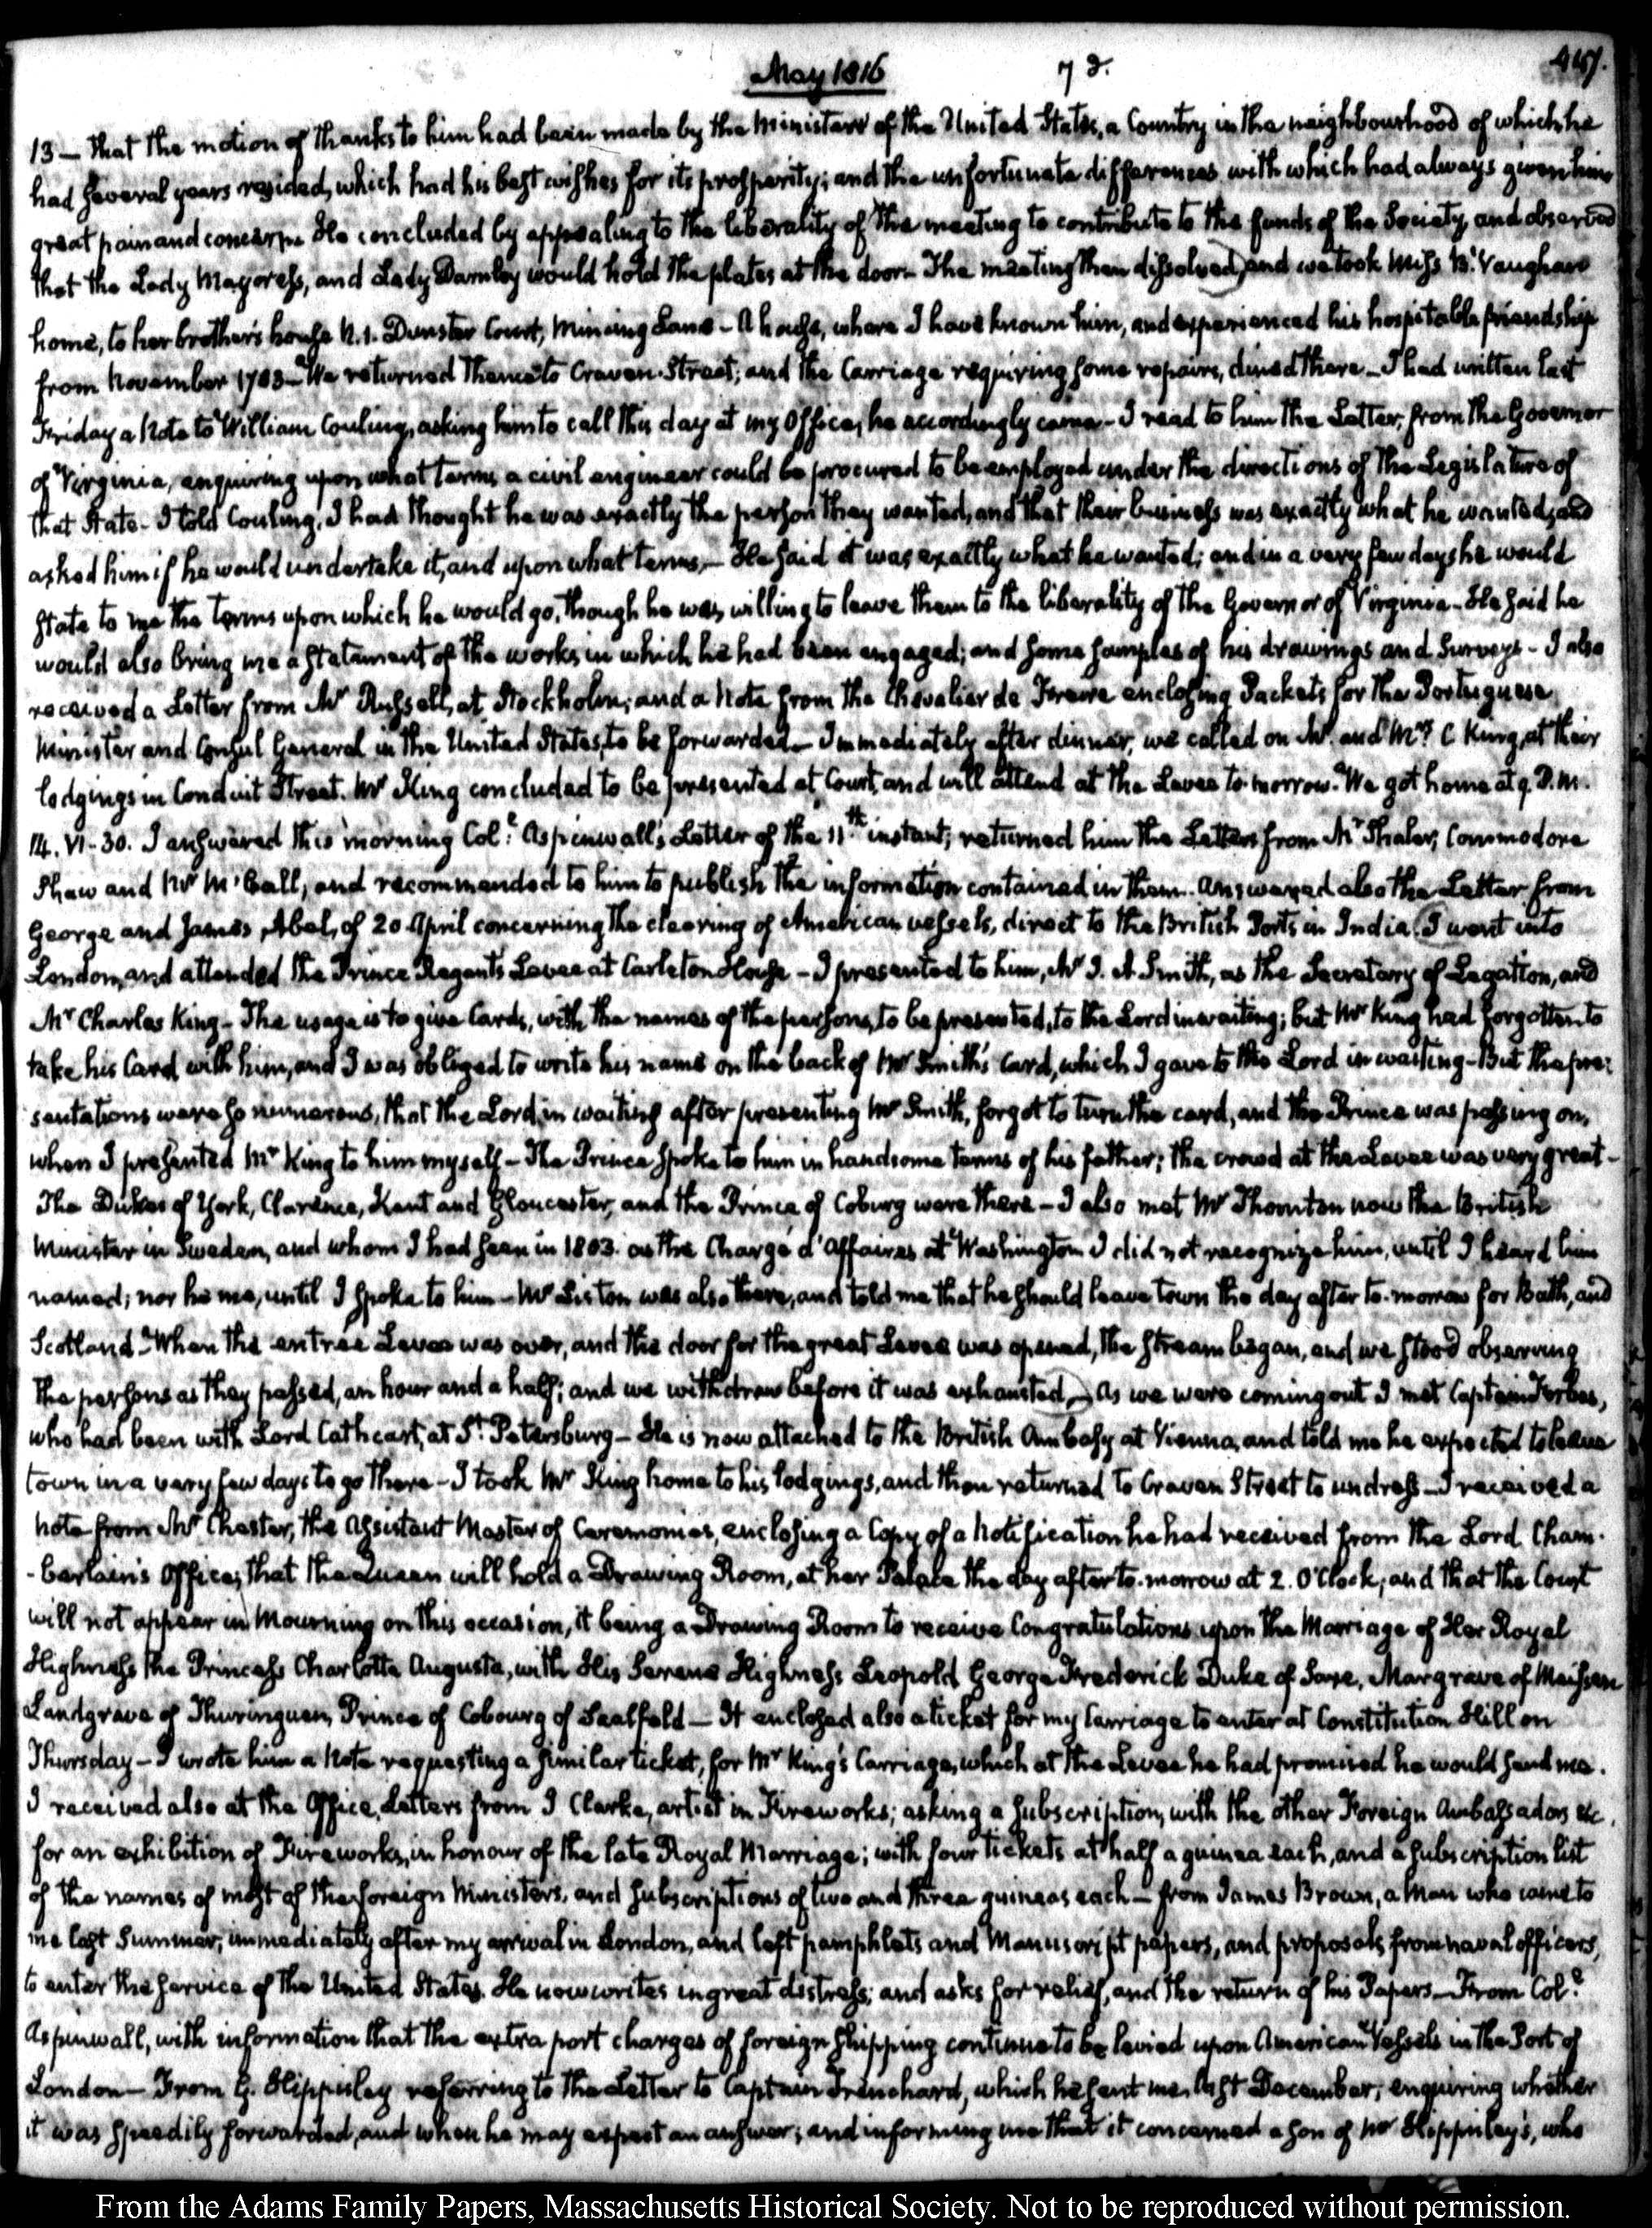 May 1816 73. 457.
13 — that the motion of thanks to him had been made by the Minister of the United States, a Country in the neighbourhood of which he
had several years resided, which had his best wishes for its prosperity; and the unfortunate differences with which had always given him
great pain and concern. He concluded by appealing to the liberality of the meeting to contribute to the funds of the Society, and observed
that the Lady Mayoress, and Lady Darnley would hold the plates at the door. The meeting then dissolved, and we took Miss B. Vaughan
home, to her brother's house N. 1. Dunster Court, Mincing Lane - A house, where I have known him, and experienced his hospitable friendship
from November 1783 - We returned thence to Craven Street; and the Carriage requiring some repairs, dined there - I had written last
Friday a Note to William Couling, asking him to call this day at my Office, he accordingly came - I read to him the Letter, from the Governor
of Virginia, enquiring upon what terms a civil engineer could be procured to be employed under the directions of the Legislature of
that State - I told Couling, I had thought he was exactly the person they wanted, and that their business was exactly what he wanted, and
asked him if he would undertake it, and upon what terms, - He said it was exactly what he wanted; and in a very few days he would
state to me the terms upon which he would go, though he was willing to leave them to the liberality of the Governor of Virginia - He said he
would also bring me a statement of the works in which he had been engaged; and some samples of his drawings and Surveys - I also
received a Letter from Mr Russell, at Stockholm; and a Note from the Chevalier de Freire enclosing Packets for the Portuguese
Minister and Consul General in the United States, to be forwarded - Immediately after dinner, we called on Mr and Mrs C King, at their
lodgings in Conduit Street. Mr King concluded to be presented at Court, and will attend at the Levee to-morrow. We got home at 9 P.M.
14. VI-30. I answered this morning Coll. Aspinwall's Letter of the 11th instant; returned him the Letters from Mr Shaler, Commodore
Shaw and Mr McCall, and recommended to him to publish the information contained in them. Answered also the Letter from
George and James Abel, of 20 April concerning the clearing of American vessels, direct to the British Ports in India. I went into
London, and attended the Prince Regent's Levee at Carleton House - I presented to him, Mr J. A. Smith, as the Secretary of Legation, and
Mr Charles King - The usage is to give Cards, with the names of the persons, to be presented, to the Lord in waiting; but Mr King had forgotten to
take his Card with him, and I was obliged to write his name on the back of Mr Smith's Card, which I gave to the Lord in waiting - But the pre:
sentations were so numerous, that the Lord in waiting after presenting Mr Smith, forgot to turn the card, and the Prince was passing on,
when I presented Mr King to him myself - The Prince spoke to him in handsome terms of his father; the crowd at the Levee was very great -
The Dukes of York, Clarence, Kent and Gloucester, and the Prince of Coburg were there - I also met Mr Thornton now the British
Minister in Sweden, and whom I had seen in 1803. as the Chargé d'Affaires at Washington I did not recognize him, until I heard him
named; nor he me, until I spoke to him - Mr Liston was also there, and told me that he should leave town the day after to-morrow for Bath, and
Scotland - When the entree Levee was over, and the door for the great Levee was opened, the stream began, and we stood observing
the persons as they passed, an hour and a half; and we withdrew before it was exhausted - As we were coming out I met Captain Forbes,
who had been with Lord Cathcart, at St. Petersburg - He is now attached to the British Embassy at Vienna, and told me he expected to leave
town in a very few days to go there - I took Mr King home to his lodgings, and then returned to Craven Street to undress - I received a
Note from Mr Chester, the Assistant Master of Ceremonies, enclosing a Copy of a Notification he had received from the Lord Cham-
-berlain's Office, that the Queen will hold a Drawing Room, at her Palace the day after to-morrow at 2. O'Clock; and that the Court
will not appear in Mourning on this occasion, it being a Drawing Room to receive Congratulations upon the Marriage of Her Royal
Highness the Princess Charlotte Augusta, with His Serene Highness Leopold George Frederick Duke of Saxe, Margrave of Meissen
Landgrave of Thuringuen, Prince of Cobourg of Saalfeld - It enclosed also a ticket for my Carriage to enter at Constitution Hill on
Thursday - I wrote him a Note requesting a similar ticket, for Mr King's Carriage, which at the Levee he had promised he would send me.
I received also at the Office, Letters from J Clarke, artist in Fireworks; asking a subscription, with the other Foreign Ambassadors &c.
for an exhibition of Fireworks, in honour of the late Royal Marriage; with four tickets at half a guinea each, and a subscription list
of the names of most of the foreign Ministers, and subscriptions of two and three guineas each - from James Brown, a Man who came to
me last Summer, immediately after my arrival in London, and left pamphlets and Manuscript papers, and proposals from naval officers,
to enter the service of the United States. He now writes in great distress; and asks for relief, and the return of his Papers - From Coll.
Aspinwall, with information that the extra port charges of foreign shipping continue to be levied upon American Vessels in the Port of
London - From G. Hippisley referring to the Letter to Captain Trenchard, which he sent me last December; enquiring whether
it was speedily forwarded, and when he may expect an answer; and informing me that it concerned a son of Mr Hippisley's, who
From the Adams Family Papers, Massachusetts Historical Society. Not to be reproduced without permission.